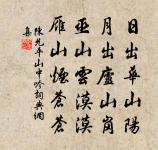 日出華山陽
月出廬山崗
巫山雲漠漠
雁山煙蒼蒼
陳允平山中吟詞典網
集